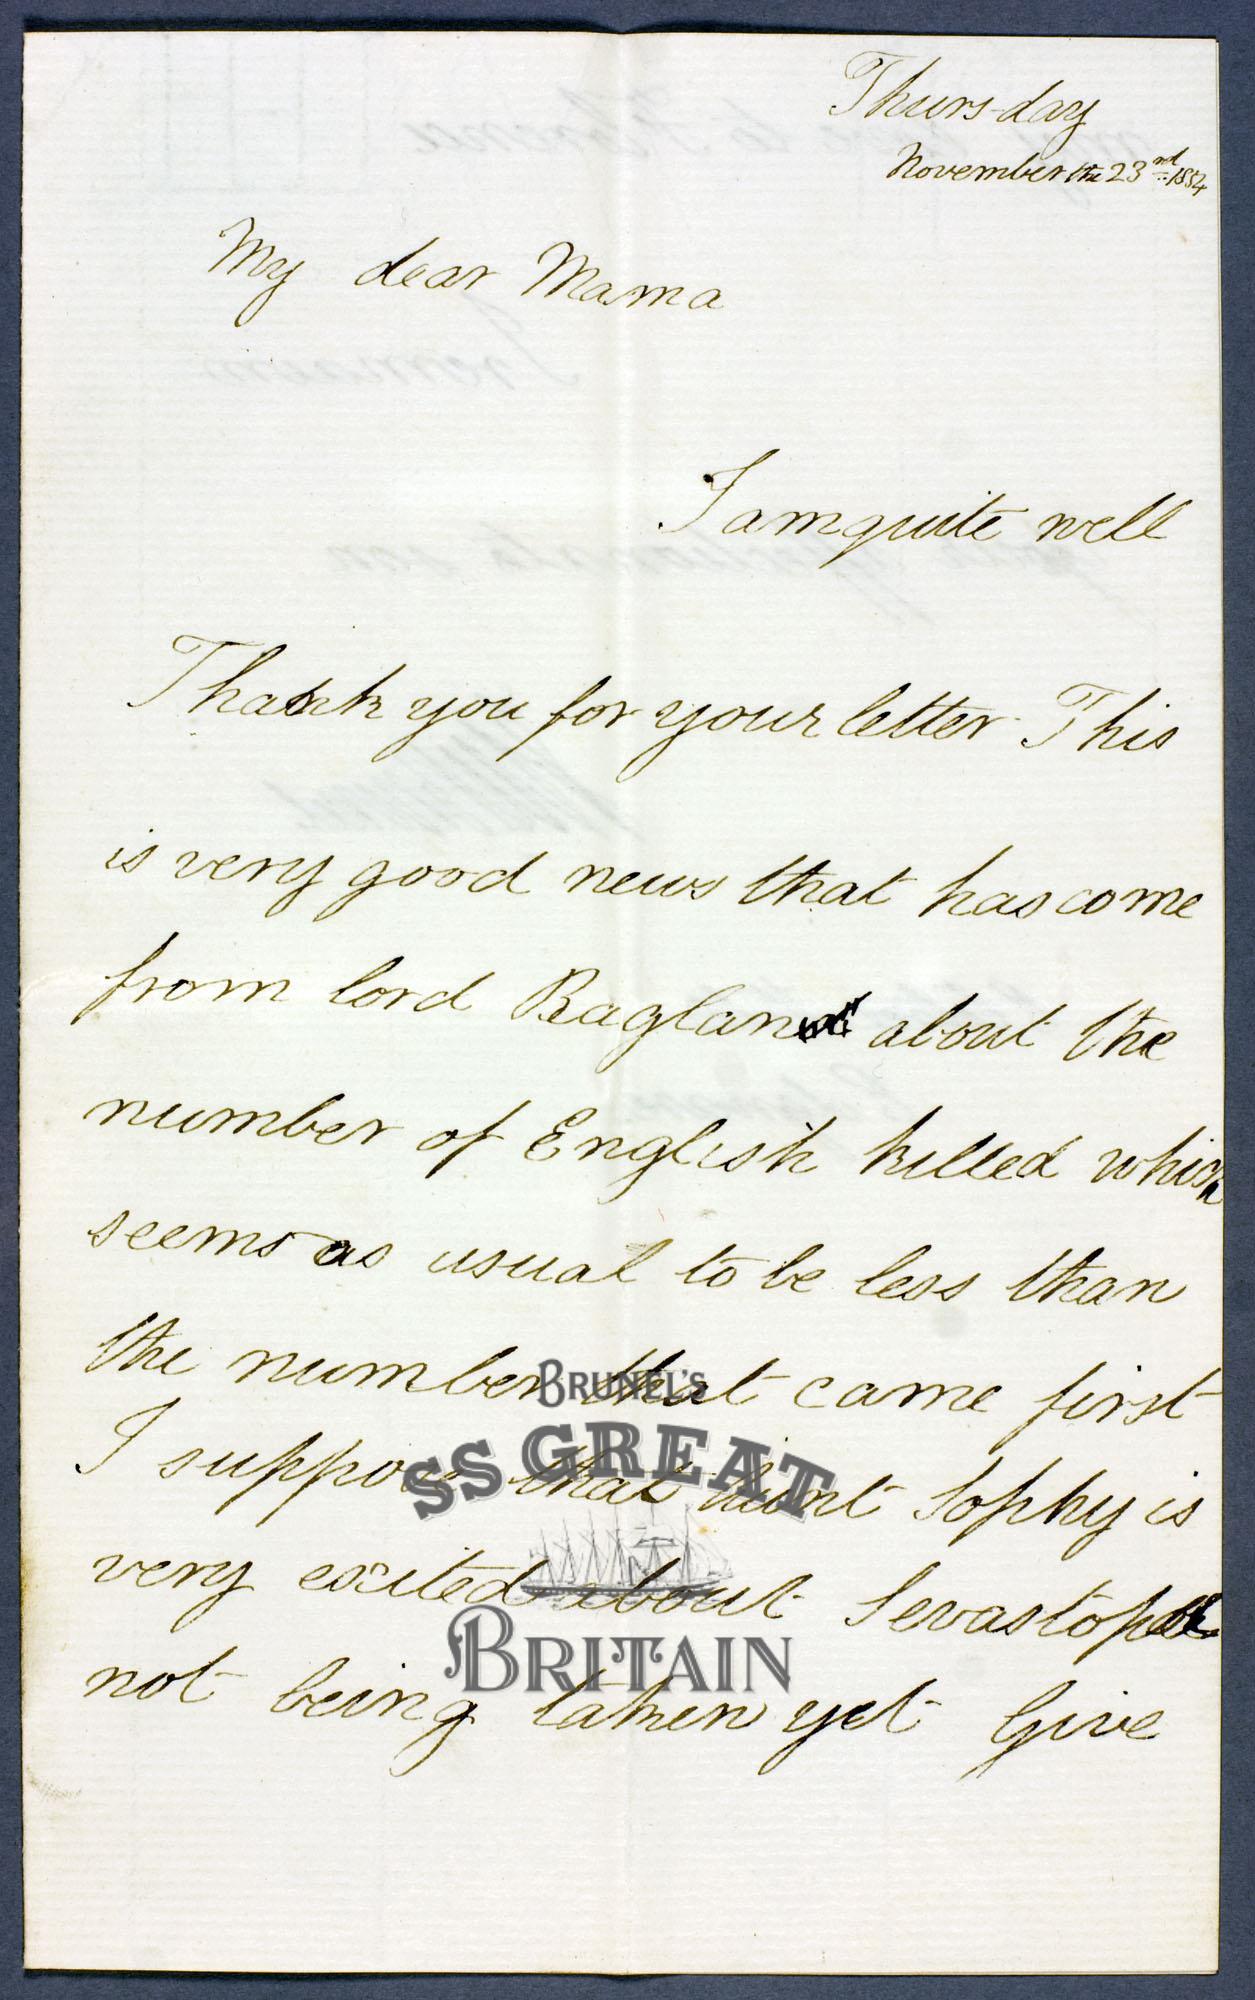 Thursday
November the 23rd 1854
My dear Mama
I am quite well
Thank you for your letter. This
is very good news that has come
from lord Raglan about the
number of English killed which
seems as usual to be less than
the number that came first
I suppose that Aunt Sophy is
very exited about Sevastopol
not being taken yet Give
BRUNEL'S
SS GREAT
BRITAIN